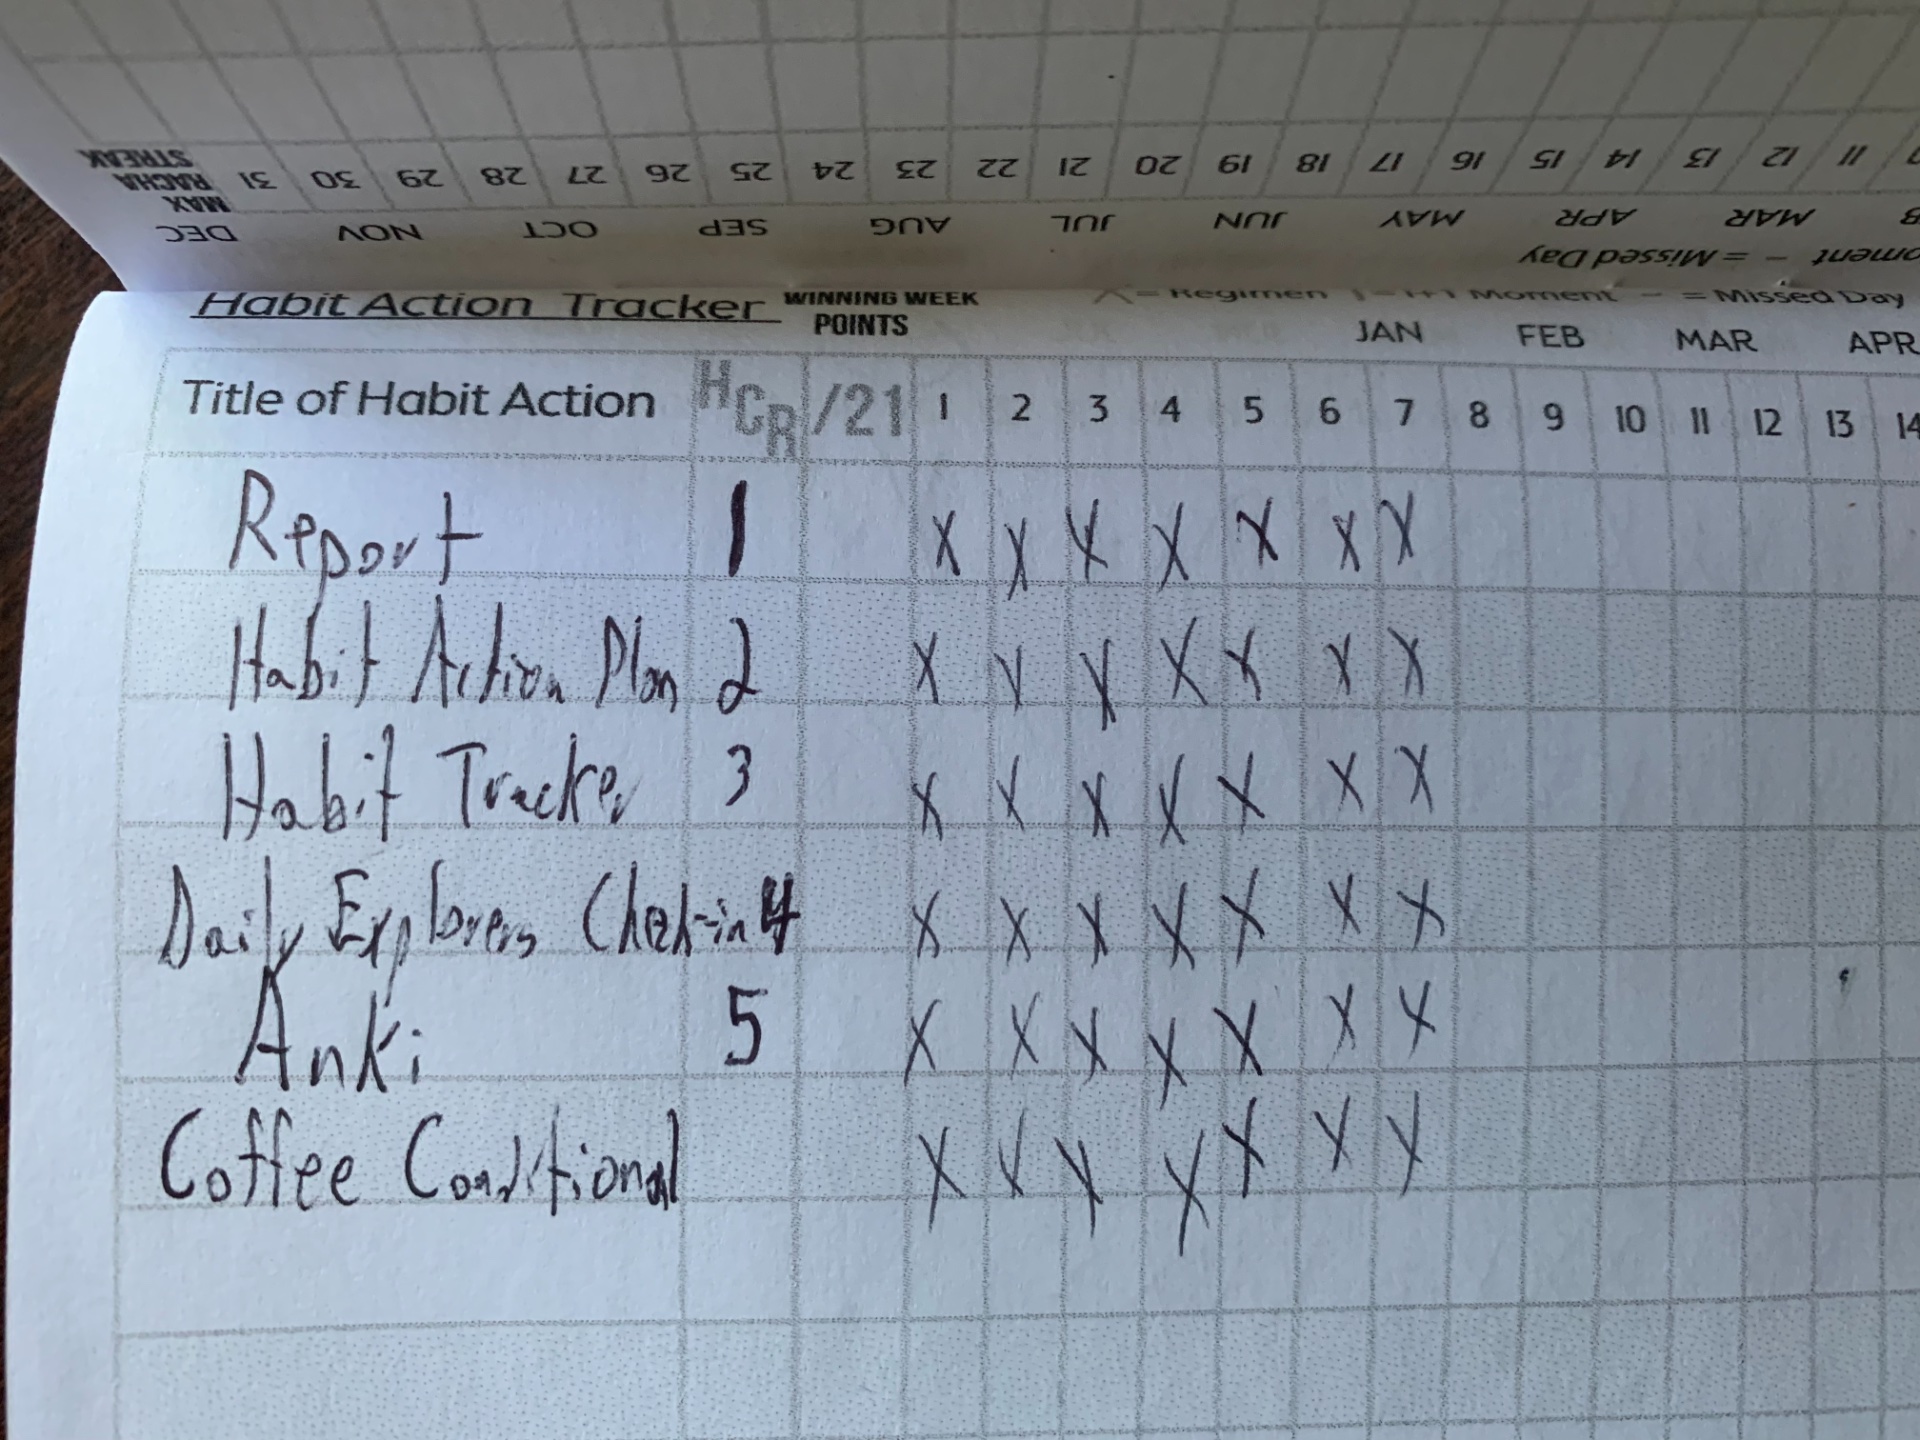 STREAK
RACHA 31 30 29 28 27 26 25 24 23 22 21 20 19 18 17 16 15 14 13 12 11
MAX
DEC NOV OCT SEP AUG JUL JUN MAY APR MAR
- = Missed Day
Habit Action Tracker WINNING WEEK POINTS X = Regimen Moment - = Missed Day
JAN FEB MAR APR
Title of Habit Action HCR /21 1 2 3 4 5 6 7 8 9 10 11 12 13 14
Report 1 X X X X X X X
Habit Action Plan 2 X X X X X X X
Habit Tracker 3 X X X X X X X
Daily Explorers Check-in 4 X X X X X X X
Anki 5 X X X X X X X
Coffee Conditional X X X X X X X